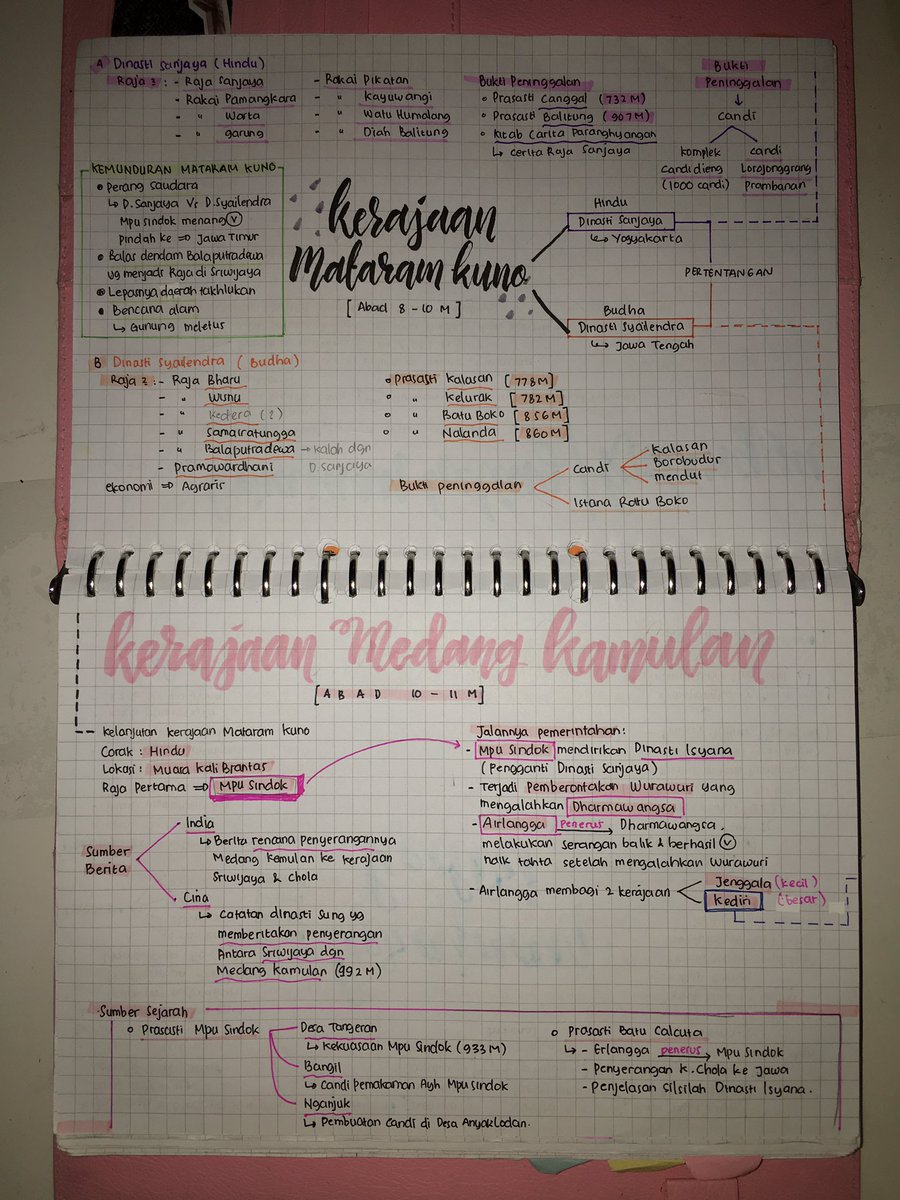 A Dinasti Sanjaya (Hindu)
Raja² : - Raja Sanjaya
- Rakai Pamangkara
- " Warta
- " garung
- Rakai Pikatan
- " Kayuwangi
- " Watu Humalang
- " Diah Balitung
Bukti Peninggalan
Prasasti Canggal (732 M)
Prasasti Balitung (907 M)
Kitab Carita Paranghyangan
↳ cerita Raja Sanjaya
Bukti
Peninggalan
↓
candi
komplek
candi dieng
(1000 candi)
candi
Lorojonggrang
Prambanan
KEMUNDURAN MATARAM KUNO
• Perang saudara
↳ D. Sanjaya Vs D. Syailendra
Mpu sindok menang (v)
pindah ke => Jawa Timur
• Balas dendam Balaputradewa
yg menjadi Raja di Sriwijaya
• Lepasnya daerah takhlukan
• Bencana alam
↳ Gunung meletus
kerajaan
Mataram kuno
[ Abad 8-10 M ]
Hindu
Dinasti Sanjaya
↳ Yogyakarta
PERTENTANGAN
Budha
Dinasti Syailendra
↳ Jawa Tengah
B Dinasti Syailendra ( Budha)
Raja² : - Raja Bharu
- " Wisnu
- " (?)
- " Samaratungga
- " Balaputradewa → kalah dgn
D. sanjaya
- Pramowardhani
ekonomi => Agraris
Prasasti kalasan [778 M]
" Kelurak [782 M]
" Batu Boko [856 M]
" Nalanda [860 M]
Bukti peninggalan
candi
Kalasan
Borobudur
mendut
Istana Ratu Boko
kerajaan Medang kamulan
[ A B A D 10 - 11 M ]
kelanjutan kerajaan Mataram kuno
Corak : Hindu
Lokasi : Muara kali Brantas
Raja Pertama => Mpu Sindok
Sumber
Berita
India
↳ Berita rencana penyerangannya
Medang kamulan ke kerajaan
Sriwijaya & chola
Cina
↳ Catatan dinasti sung yg
memberitakan penyerangan
Antara Sriwijaya dgn
Medang kamulan (992 M)
Jalannya pemerintahan:
- Mpu Sindok mendirikan Dinasti Isyana
(Pengganti Dinasti Sanjaya)
- Terjadi Pemberontakan Wurawuri yang
mengalahkan Dharmawangsa
- Airlangga penerus → Dharmawangsa,
melakukan serangan balik & berhasil (v)
naik tahta setelah mengalahkan wurawuri
- Airlangga membagi 2 kerajaan
Jenggala (kecil)
Kediri (besar)
Sumber Sejarah
Prasasti Mpu Sindok
Desa Tangeran
↳ Kekuasaan Mpu Sindok (933 M)
Bangil
↳ Candi Pemakaman Ayh Mpu Sindok
Nganjuk
↳ Pembuatan candi di Desa Anyaklodan.
Prasasti Batu Calcuta
↳ - Erlangga penerus → Mpu Sindok
- Penyerangan K. Chola ke Jawa
- Penjelasan silsilah Dinasti Isyana.